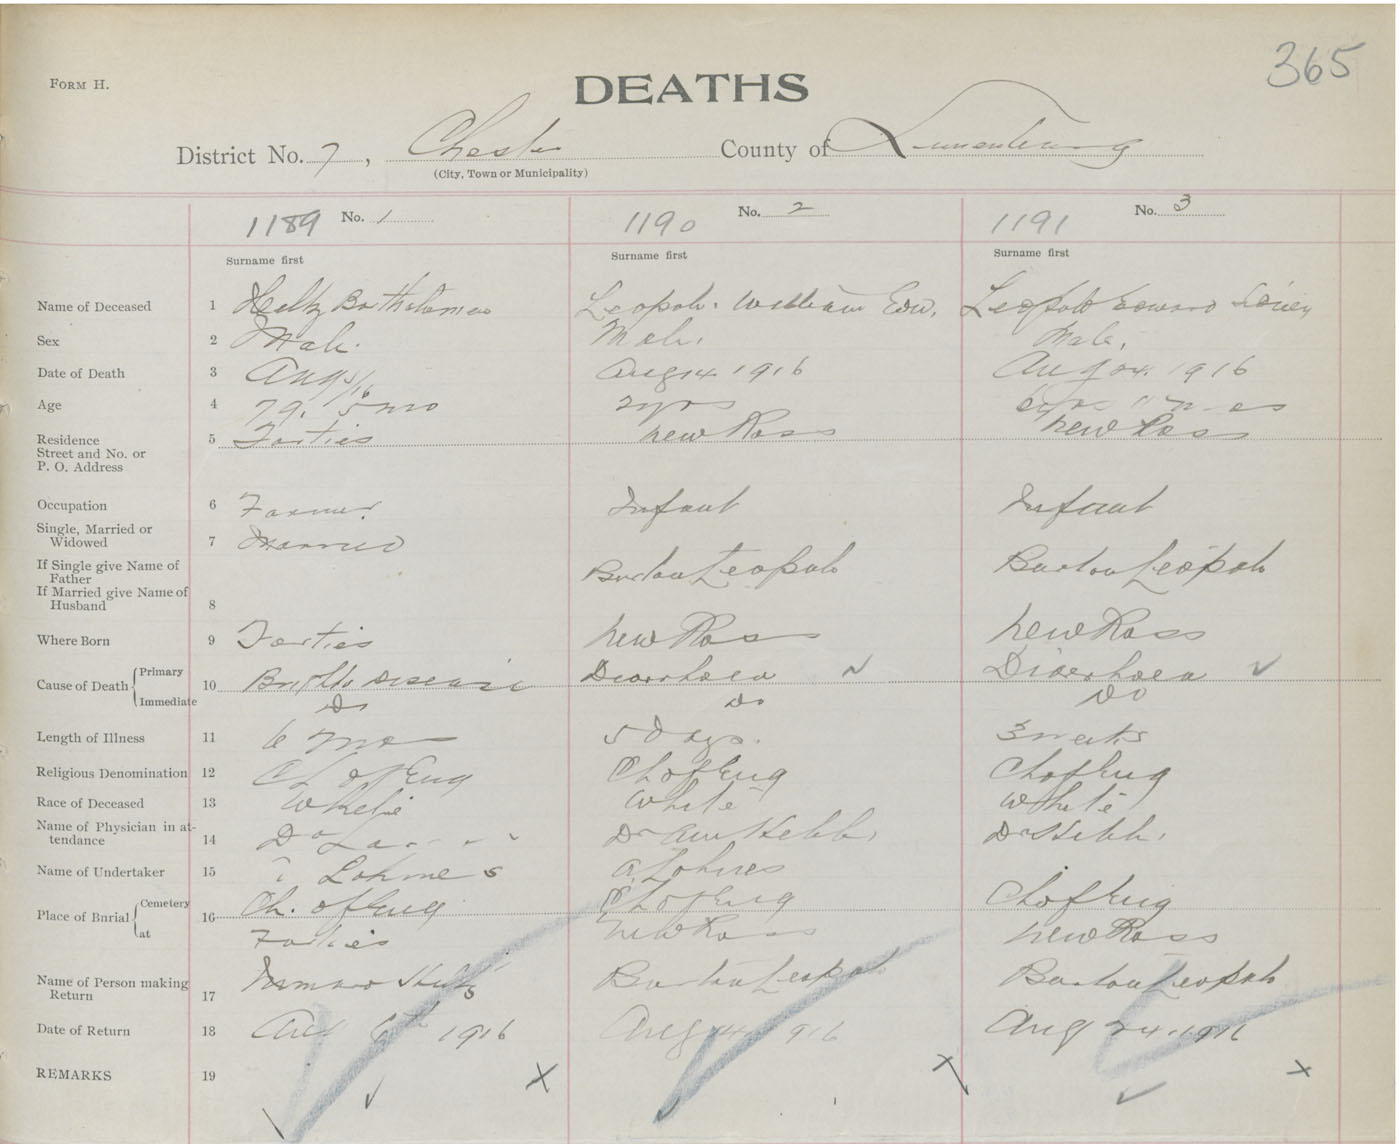 365
FORM H.
DEATHS
District No. 7, Chester County of Lunenburg
(City, Town or Municipality)
1189 No. 1 1190 No. 2 1191 No. 3
Surname first Surname first Surname first
Name of Deceased 1 Bartholomew Leopold. William Edw. Leopold Edward
Sex 2 Male. Male. Male.
Date of Death 3 Aug 5/16 Aug 14 1916 Aug 24. 1916
Age 4 79. 5 mo 2 yrs
Residence 5 Forties New Ross New Ross
Street and No. or
P. O. Address
Occupation 6 Farmer Infant Infant
Single, Married or
Widowed 7 Married
If Single give Name of
Father Burton Leopold Burton Leopold
If Married give Name of
Husband 8
Where Born 9 Forties New Ross New Ross
Cause of Death Primary 10 Brights Disease Diarrhoea Diarrhoea
Immediate Do Do Do
Length of Illness 11 6 mos 5 Days. 3 weeks
Religious Denomination 12 Ch of Eng Ch of Eng Ch of Eng
Race of Deceased 13 White White White
Name of Physician in at-
tendance 14 Dr Dr Hebb. Dr Hebb.
Name of Undertaker 15 Lohnes A. Lohnes
Place of Burial Cemetery 16 Ch. of Eng Ch of Eng Ch of Eng
at Forties New Ross New Ross
Name of Person making
Return 17 Burton Leopold Burton Leopold
Date of Return 18 Aug 6th 1916 Aug 14 1916 Aug 24. 1916
REMARKS 19